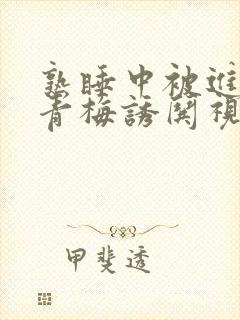 熟睡中被進
青梅誘関視
甲斐透